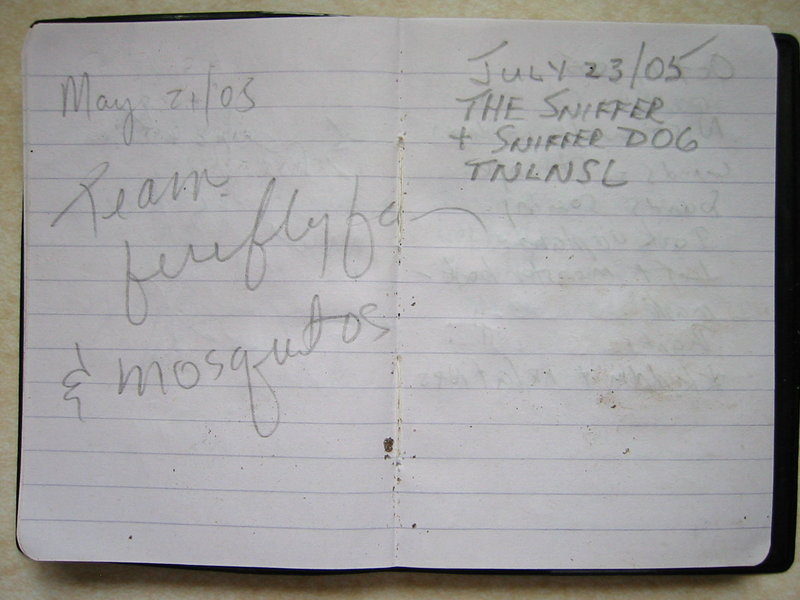 May 21/05
Team
fireflyfan
& mosquitos
JULY 23/05
THE SNIFFER
+ SNIFFER DOG
TNLNSL